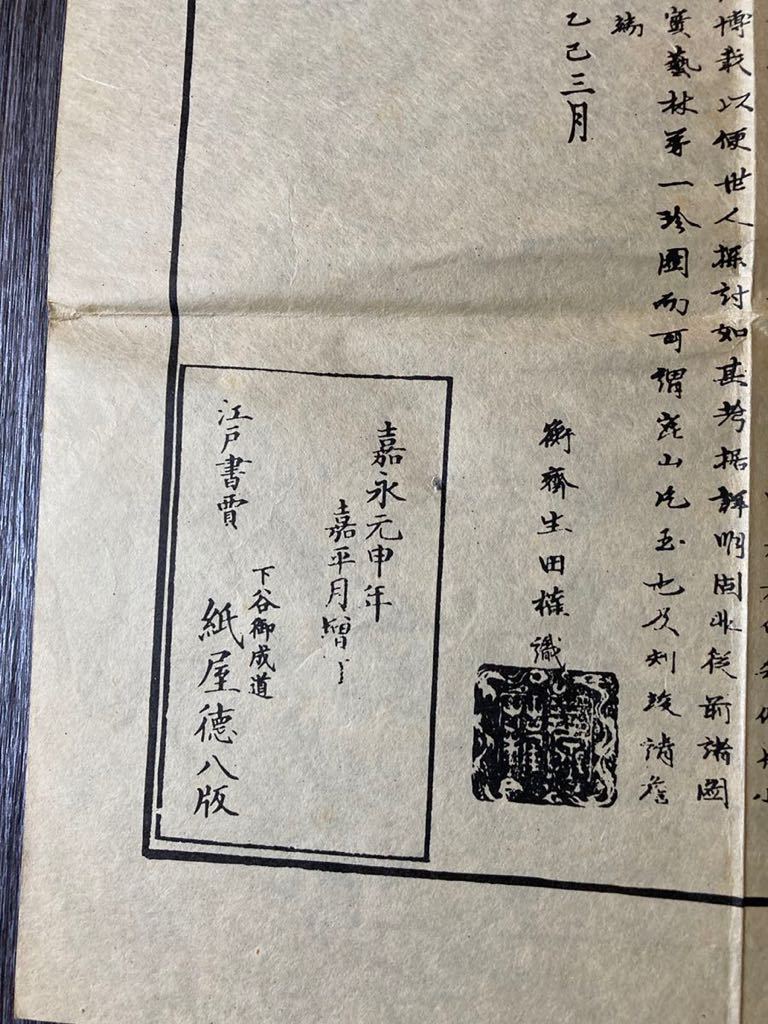 博載以便世人探討如其考据詳明固非従前諸圖
實藝林第一珍圖而可謂崑山片玉也及刻竣請
端
乙巳三月
衡齋生田 識
嘉永元申年
嘉平月増
江戸書賈
下谷御成道
紙屋徳八版